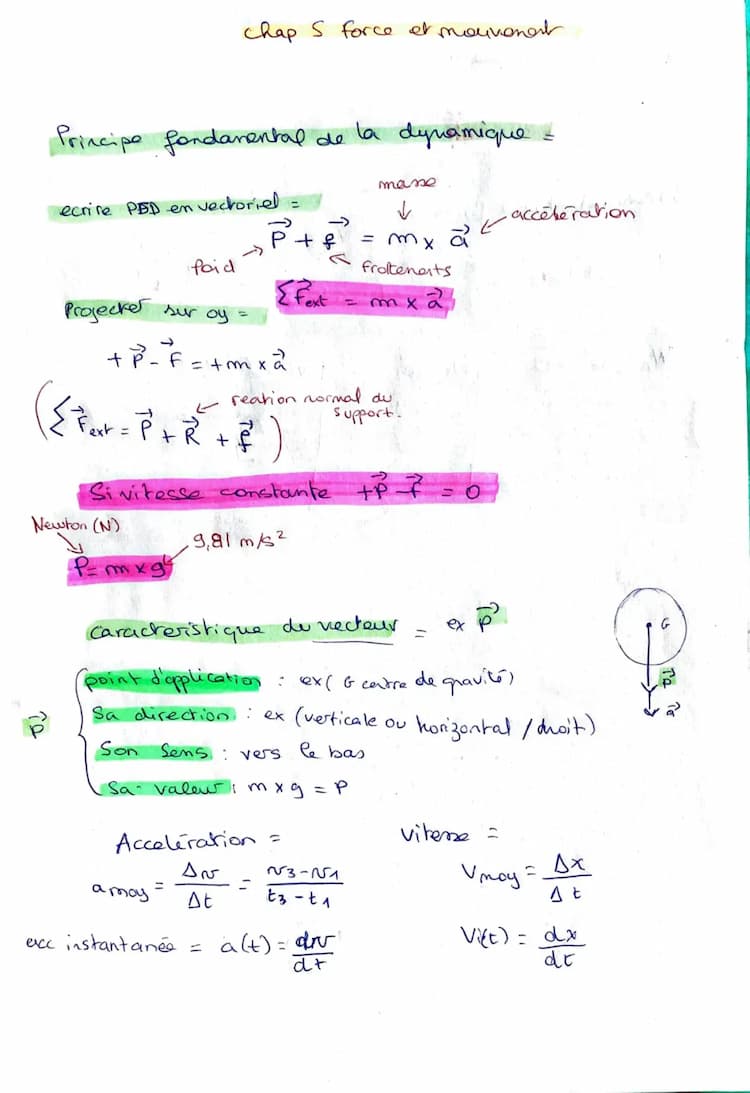 Chap 5 force et mouvement
Principe fondamental de la dynamique =
ecrire PFD en vectoriel =
masse
P⃗ + f⃗ = m x a⃗
accélération
poid
frottements
ΣF⃗ext = m x a⃗
Projecter sur oy =
+ P⃗ - f⃗ = + m x a⃗
reation normal du support.
(ΣF⃗ext = P⃗ + R⃗ + f⃗)
Si vitesse constante +P⃗ - f⃗ = 0
Newton (N)
9,81 m/s²
P = m x g
caracteristique du vecteur = ex P⃗
G
P⃗
a⃗
point d'application : ex ( G centre de gravité)
P⃗
Sa direction : ex (verticale ou horizontal / droit)
Son Sens : vers le bas
Sa valeur : m x g = P
Accelération =
Vitesse =
a moy = Δv/Δt = v3-v1/t3-t1
Vmoy = Δx/Δt
acc instantanée = a(t) = dv/dt
Vi(t) = dx/dt